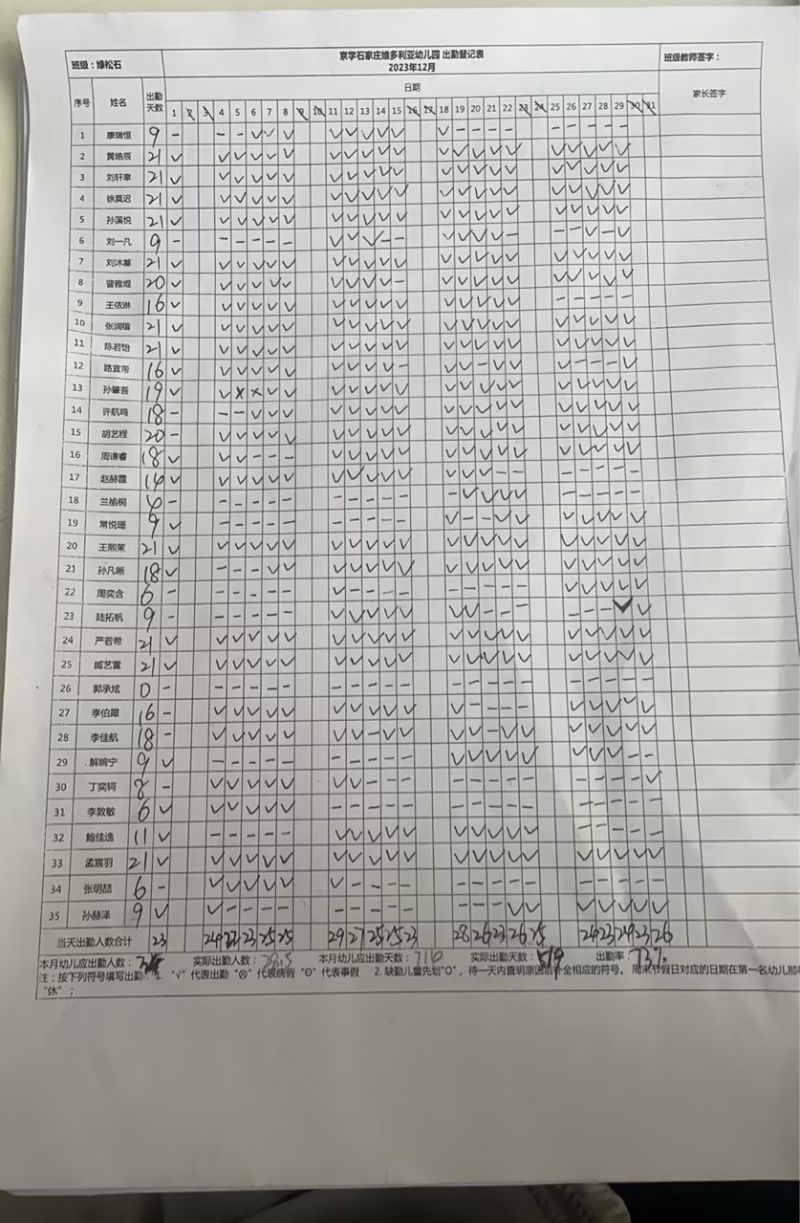 京学石家庄维多利亚幼儿园 出勤登记表
班级：绿松石 2023年12月 班级教师签字：
序号 姓名 出勤天数 日期 家长签字
1 2 3 4 5 6 7 8 9 10 11 12 13 14 15 16 17 18 19 20 21 22 23 24 25 26 27 28 29 30 31
1 康瑞恒 9 – – – √ √ √ √ √ √ √ √ √ – – – – – – – – –
2 黄皓辰 21 √ √ √ √ √ √ √ √ √ √ √ √ √ √ √ √ √ √ √ √ √
3 刘轩聿 21 √ √ √ √ √ √ √ √ √ √ √ √ √ √ √ √ √ √ √ √ √
4 徐莫迟 21 √ √ √ √ √ √ √ √ √ √ √ √ √ √ √ √ √ √ √ √ √
5 孙溪悦 21 √ √ √ √ √ √ √ √ √ √ √ √ √ √ √ √ √ √ √ √ √
6 刘一凡 9 – – – – – – √ √ √ – – √ √ √ √ – – – √ – √
7 刘沐蓁 21 √ √ √ √ √ √ √ √ √ √ √ √ √ √ √ √ √ √ √ √ √
8 雅煜 20 √ √ √ √ √ √ √ √ √ √ – √ √ √ √ √ √ √ √ √ √
9 王依琳 16 √ √ √ √ √ √ √ √ √ √ √ √ √ √ √ √ – – – – –
10 张润瑄 21 √ √ √ √ √ √ √ √ √ √ √ √ √ √ √ √ √ √ √ √ √
11 陈若怡 21 √ √ √ √ √ √ √ √ √ √ √ √ √ √ √ √ √ √ √ √ √
12 路宜帘 16 √ √ √ √ √ √ √ √ √ √ – √ √ – √ √ √ – – – √
13 孙肇吾 19 √ √ × × √ √ √ √ √ √ √ √ √ √ √ √ √ √ √ √ √
14 许航鸣 18 – – – √ √ √ √ √ √ √ √ √ √ √ √ √ √ √ √ √ √
15 胡艺程 20 – √ √ √ √ √ √ √ √ √ √ √ √ √ √ √ √ √ √ √ √
16 周谦睿 18 √ √ √ – – – √ √ √ √ √ √ √ √ √ √ √ √ √ √ √
17 赵赫霆 14 √ √ √ √ √ √ √ √ √ √ √ √ √ √ – – – – – – –
18 兰榆桐 – – – – – – – – – – – – √ √ √ √ – – – – –
19 常悦珊 9 √ – – – – – – – – – – √ – – √ √ √ √ √ √ √
20 王熙茉 21 √ √ √ √ √ √ √ √ √ √ √ √ √ √ √ √ √ √ √ √ √
21 孙凡晰 18 √ – – – √ √ √ √ √ √ √ √ √ √ √ √ √ √ √ √ √
22 周奕含 6 – – – – – – √ – – – – – – – – – √ √ √ √ √
23 陆拓帆 9 – – – – – – √ √ √ √ √ √ √ – – – – – – √ √
24 严若希 21 √ √ √ √ √ √ √ √ √ √ √ √ √ √ √ √ √ √ √ √ √
25 臧艺萱 21 √ √ √ √ √ √ √ √ √ √ √ √ √ √ √ √ √ √ √ √ √
26 郭承炫 0 – – – – – – – – – – – – – – – – – – – – –
27 李伯犀 16 – √ √ √ √ √ √ √ √ √ √ √ – – – – √ √ √ √ √
28 李佳航 18 – √ √ √ √ √ √ √ – √ √ √ √ – √ √ √ √ √ √ √
29 解婉宁 9 √ – – – – – – – – – – √ √ √ √ √ √ √ √ – –
30 丁奕轲 8 – √ √ √ √ √ √ √ – – – – – – – – – – – – √
31 李敦敏 6 √ √ √ √ √ √ – – – – – – – – – – – – – – –
32 鲍佳逸 11 √ – – – – – √ √ √ √ √ √ √ √ √ √ – – – – –
33 孟宸羽 21 √ √ √ √ √ √ √ √ √ √ √ √ √ √ √ √ √ √ √ √ √
34 张明喆 6 – √ √ √ √ √ √ – – – – – – – – – – – – – –
35 孙赫泽 9 √ √ – – – – – – – – – – – – √ √ √ √ √ √ √
当天出勤人数合计 23 24 22 23 25 25 29 27 25 25 23 28 26 23 26 25 24 23 24 23 26
本月幼儿应出勤人数： 实际出勤人数：28.5 本月幼儿应出勤天数：716 实际出勤天数：519 出勤率：73%
注：按下列符号填写出勤：1. "√" 代表出勤 "⊗" 代表病假 "Θ" 代表事假 2. 缺勤儿童先划"O"，待一天内查明原因后补全相应的符号。 周末节假日对应的日期在第一名幼儿那
"休"；